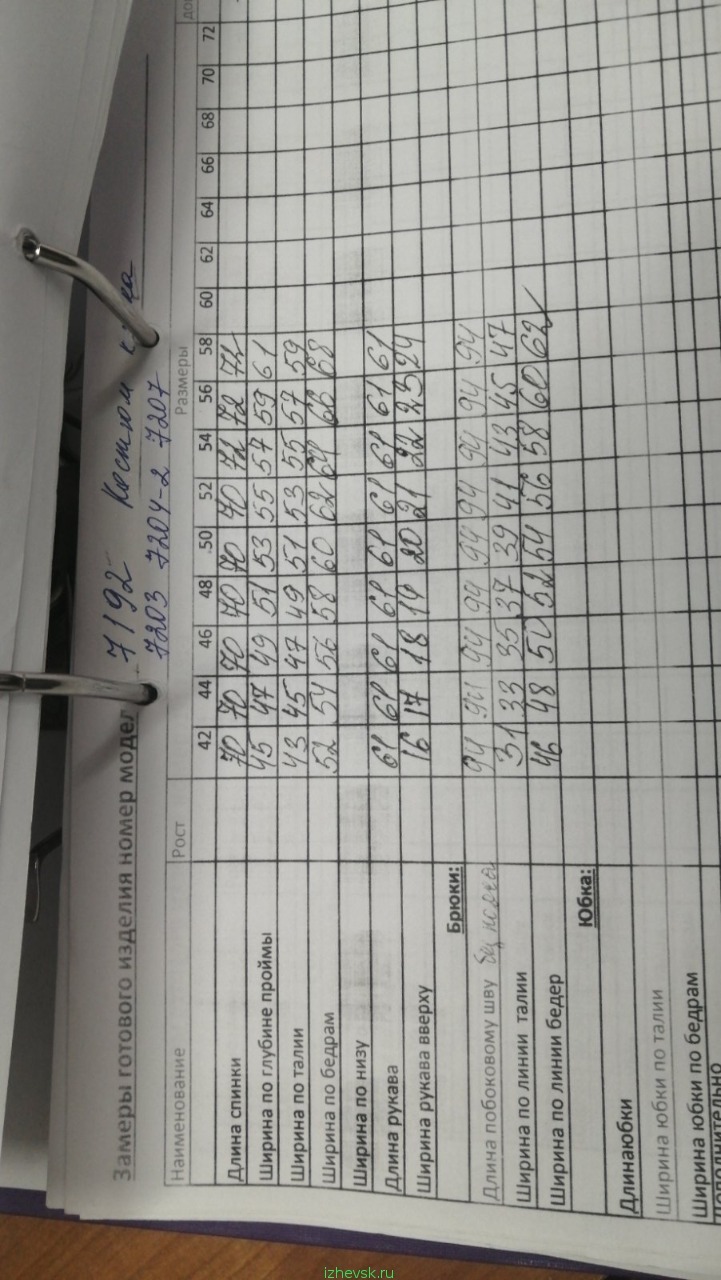 Замеры готового изделия номер модел 7192 Костюм
7203 7204-2 7207
Наименование Рост Размеры
42 44 46 48 50 52 54 56 58 60 62 64 66 68 70 72
Длина спинки 70 70 70 70 70 70 71 72 72
Ширина по глубине проймы 45 47 49 51 53 55 57 59 61
Ширина по талии 43 45 47 49 51 53 55 57 59
Ширина по бедрам 52 54 56 58 60 62 64 66 68
Ширина по низу
Длина рукава 61 61 61 61 61 61 61 61 61
Ширина рукава вверху 16 17 18 19 20 21 22 23 24
Брюки:
Длина побоковому шву без пояса 94 94 94 94 94 94 94 94 94
Ширина по линии талии 31 33 35 37 39 41 43 45 47
Ширина по линии бедер 46 48 50 52 54 56 58 60 62
Юбка:
Длинаюбки
Ширина юбки по талии
Ширина юбки по бедрам
izhevsk.ru